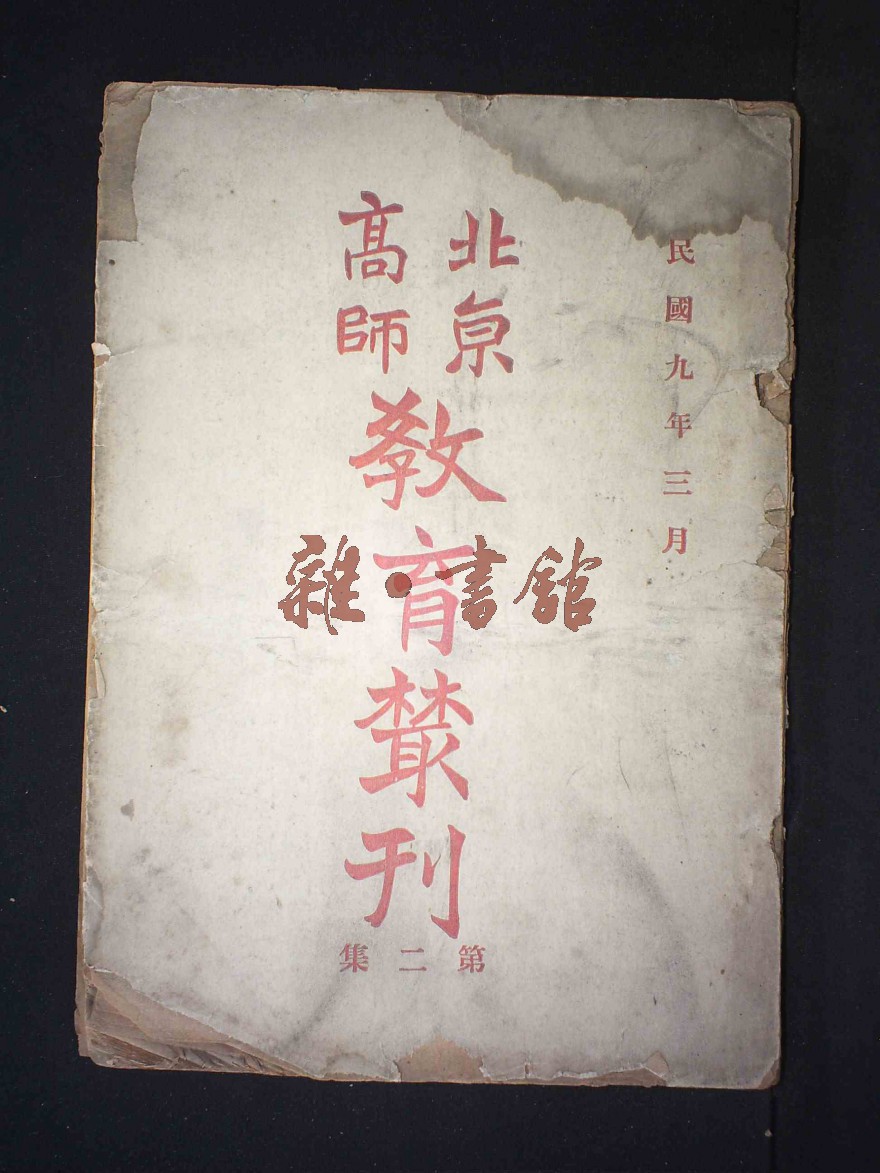 民國九年三月
北京
高師
教育叢刊
第二集
雜·書館